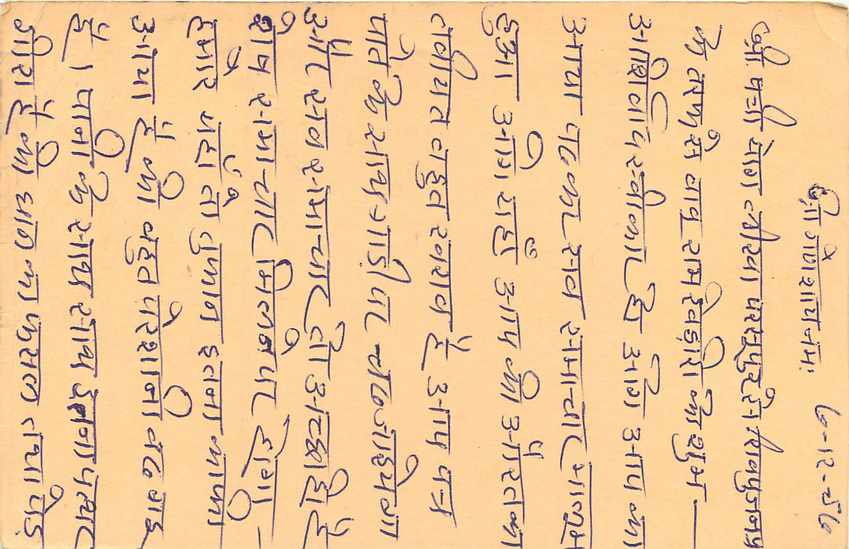 ७-१२-५७
श्री गणेशाय नमः
श्री पत्री योग लीखा परसपुर से शिवपुजन
के तरफ से बाबु राम रेखड़ी को शुभ —
आशिर्वाद स्वीकार हो आगे आप का
आया पढ कर सब समाचार मालुम
हुआ आगे राहा आप की औरत का
तबीयत बहुत खराब है आप पत्र
पाते के साथ गाड़ी पर चढ जाइयेगा
और सब समाचार तो अच्छा ही है
शेष समाचार मिलने पर होगा —
हमारे यहां तो तुफान इतना काफी
आया है की बहुत परेशानी बढ गइ
है। पानी के साथ साथ इतना पथर
गीरा है की धान का फसल तथा पेड़